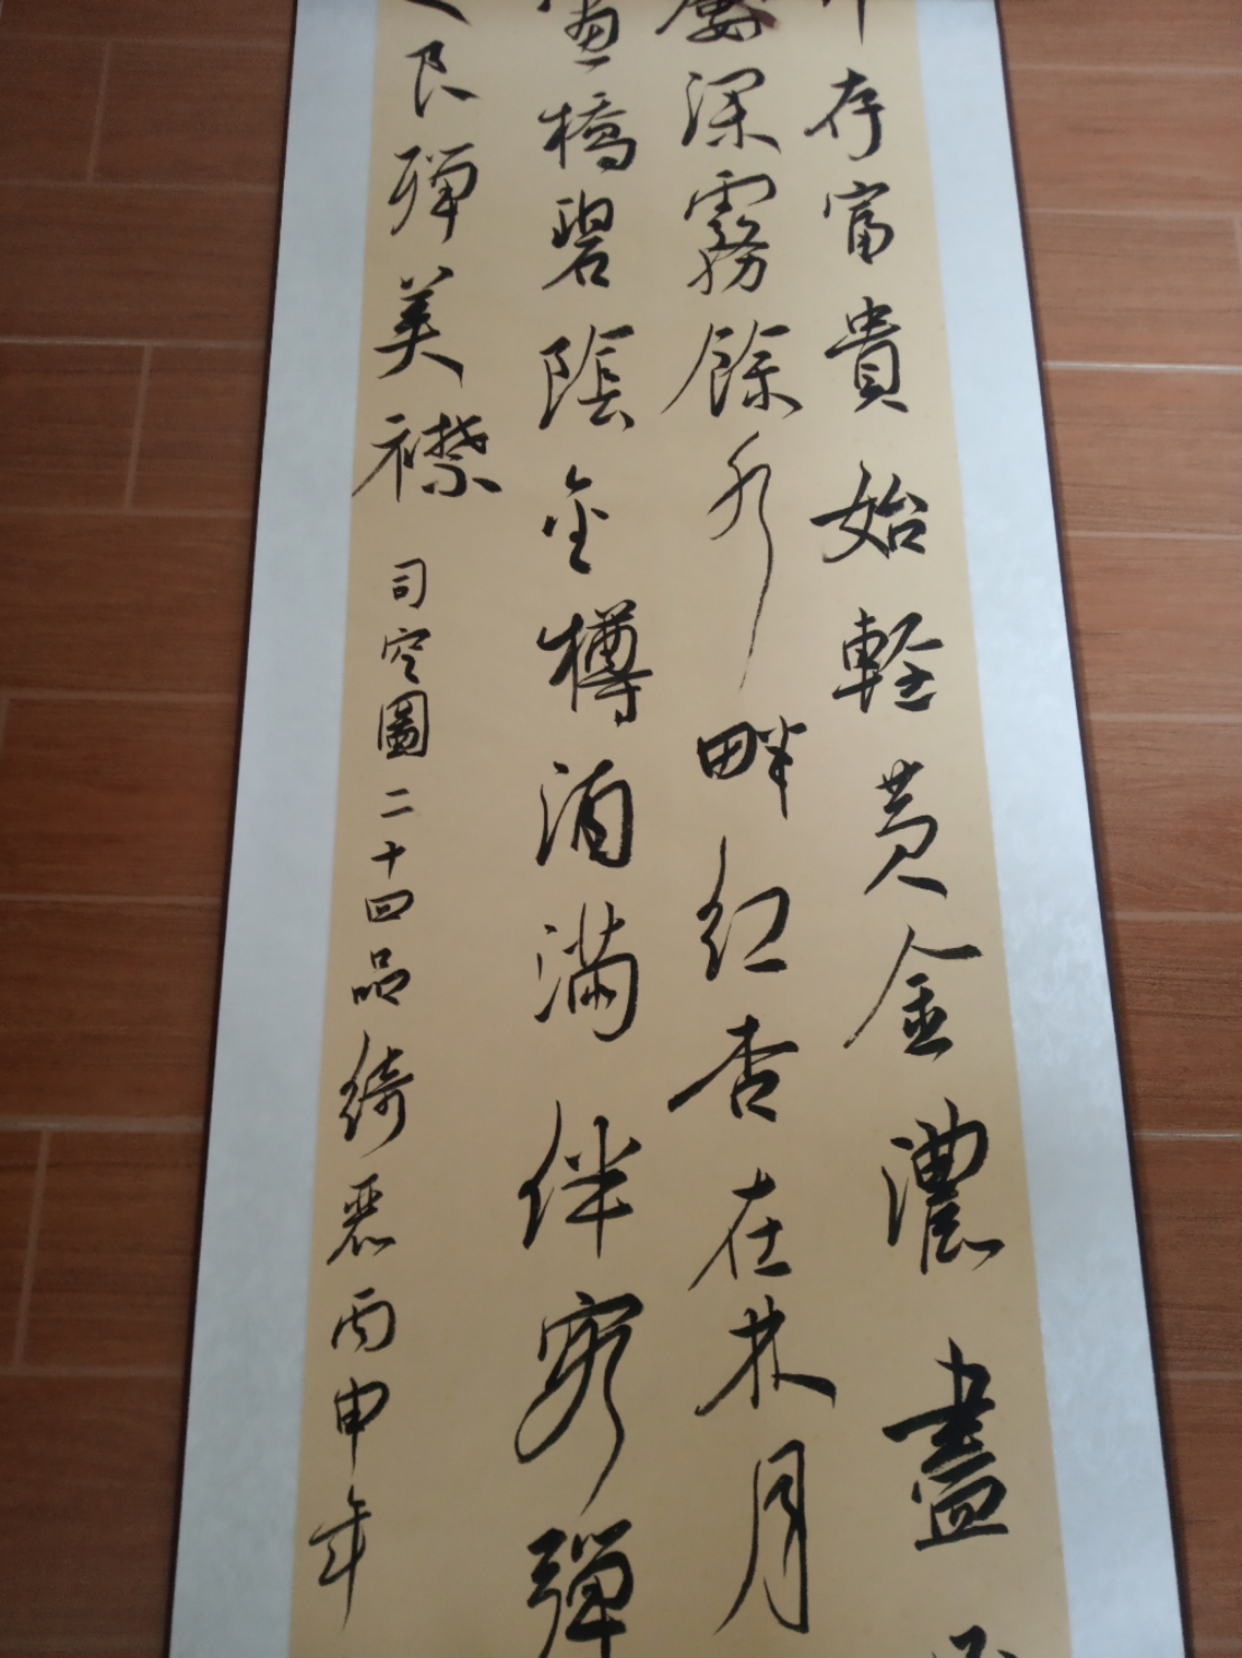 存富貴始輕黄金濃盡
屡深霧餘水畔紅杏在林月
畫橋碧陰金樽酒滿伴客彈
之良殫美襟
司空圖二十四品綺麗丙申年